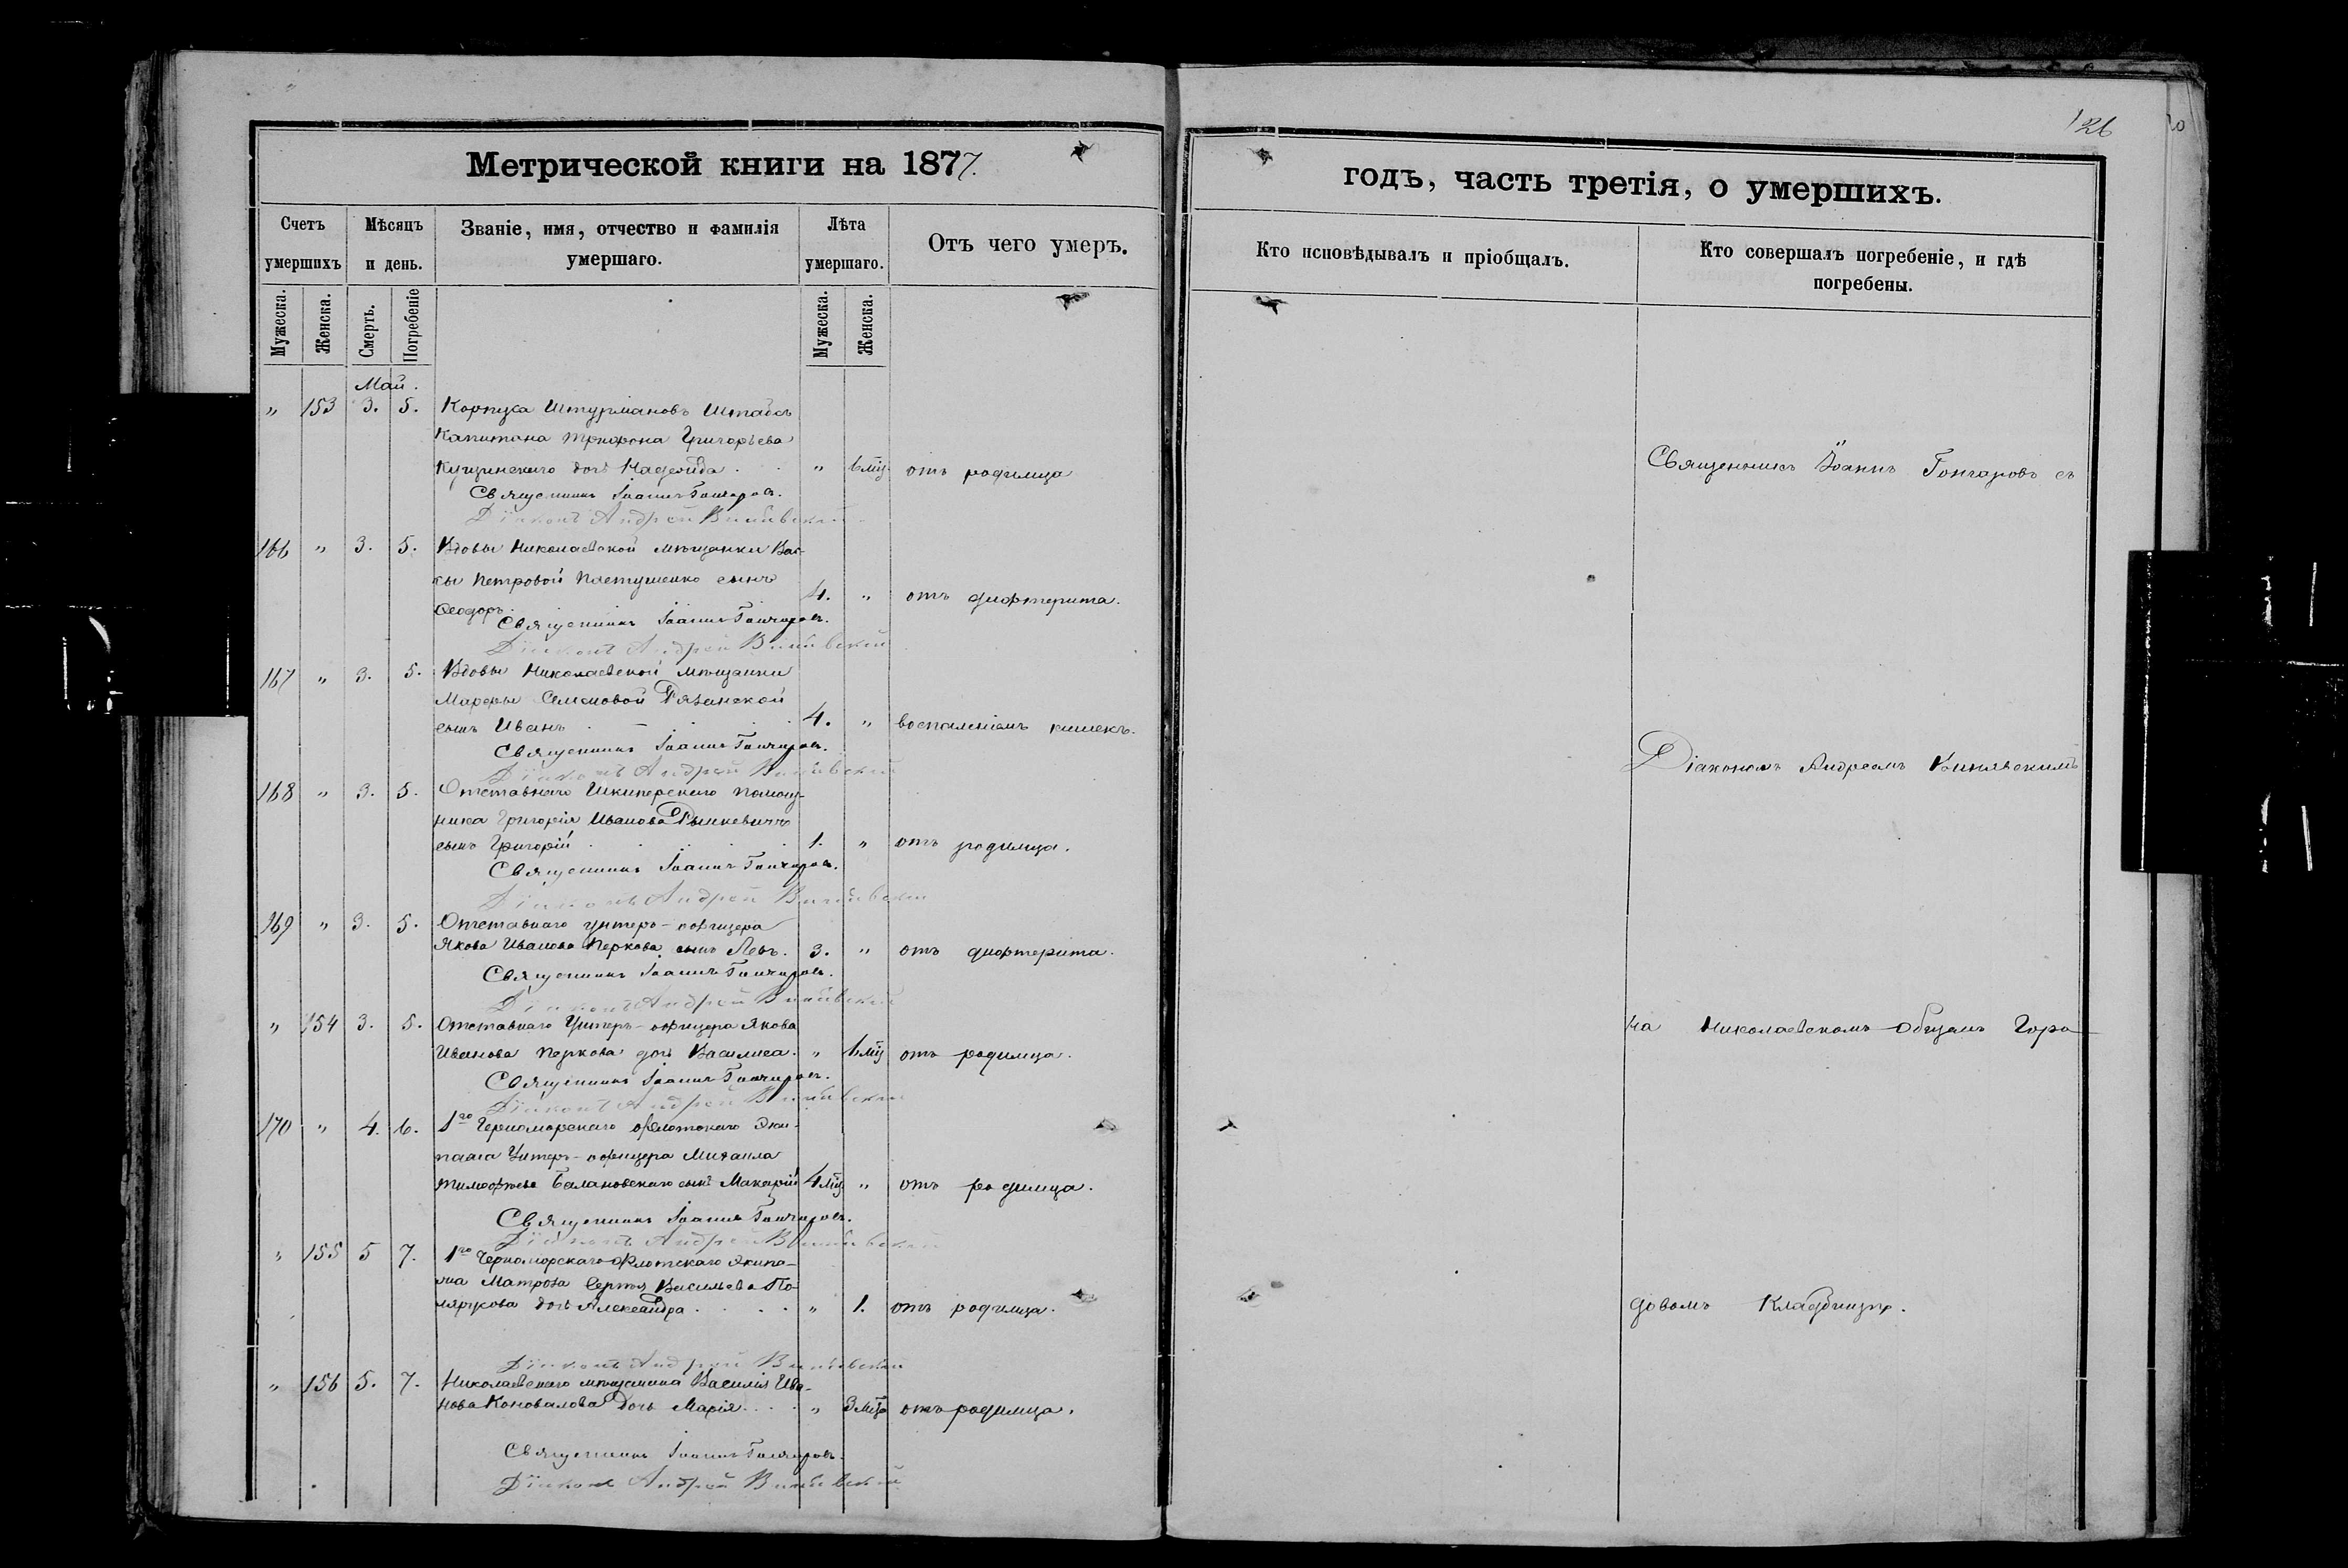 126
Метрической книги на 1877.
годъ, часть третія, о умершихъ.
Счетъ умершихъ
Мѣсяцъ и день.
Званіе, имя, отчество и фамилія умершаго.
Лѣта умершаго.
Отъ чего умеръ.
Кто исповѣдывалъ и пріобщалъ.
Кто совершалъ погребеніе, и гдѣ погребены.
Мужеска.
Женска.
Смерть.
Погребеніе
Мужеска.
Женска.
Май.
„ 153 3. 5. Корпуса Штурмановъ Штабсъ
Капитана Григорьева
дочь Надежда . „ 6 мѣц отъ родимца
Священникъ Іоаннъ Гончаровъ.
Діаконъ Андрей
166 „ 3. 5. Вдовы Николаевской мѣщанки Вас-
сы Петровой Пастушенко сынъ
Ѳеодоръ. 4. „ отъ дифтерита.
Священникъ Іоаннъ Гончаровъ.
Діаконъ Андрей
167 „ 3. 5. Вдовы Николаевской мѣщанки
Марфы Семеновой Рязанской
сынъ Иванъ 4. „ воспаленіемъ кишекъ.
Священникъ Іоаннъ Гончаровъ.
Діаконъ Андрей
168 „ 3. 5. Отставнаго Шкиперскаго помощ-
ника Григорія Иванова
сынъ Григорій 1. „ отъ родимца.
Священникъ Іоаннъ Гончаровъ.
Діаконъ Андрей
169 „ 3. 5. Отставнаго унтеръ-офицера
Якова Иванова Перкова сынъ Левъ. 3. „ отъ дифтерита.
Священникъ Іоаннъ Гончаровъ.
Діаконъ Андрей
„ 154 3. 5. Отставнаго Унтеръ-офицера Якова
Иванова Перкова дочь Василиса. „ 6 мѣц отъ родимца.
Священникъ Іоаннъ Гончаровъ.
Діаконъ Андрей
170 „ 4. 6. 1го Черноморскаго флотскаго Эки-
пажа Унтеръ-офицера Михаила
Тимофѣева Балановскаго сынъ Макарій 4 мѣц „ отъ родимца.
Священникъ Іоаннъ Гончаровъ.
Діаконъ Андрей
„ 155 5 7. 1го Черноморскаго Флотскаго Экипа-
жа Матроза Сергѣя Васильева По-
дочь Александра . . . . „ 1. отъ родимца.
Діаконъ Андрей
„ 156 5. 7. Николаевскаго мѣщанина Василія Ива-
нова Коновалова дочь Марія . . . „ 3 мѣца отъ родимца.
Священникъ Іоаннъ Гончаровъ.
Діаконъ Андрей
Священникъ Іоаннъ Гончаровъ съ
Діакономъ Андреемъ
на Николаевскомъ Общемъ Горо
довомъ Кладбищѣ.